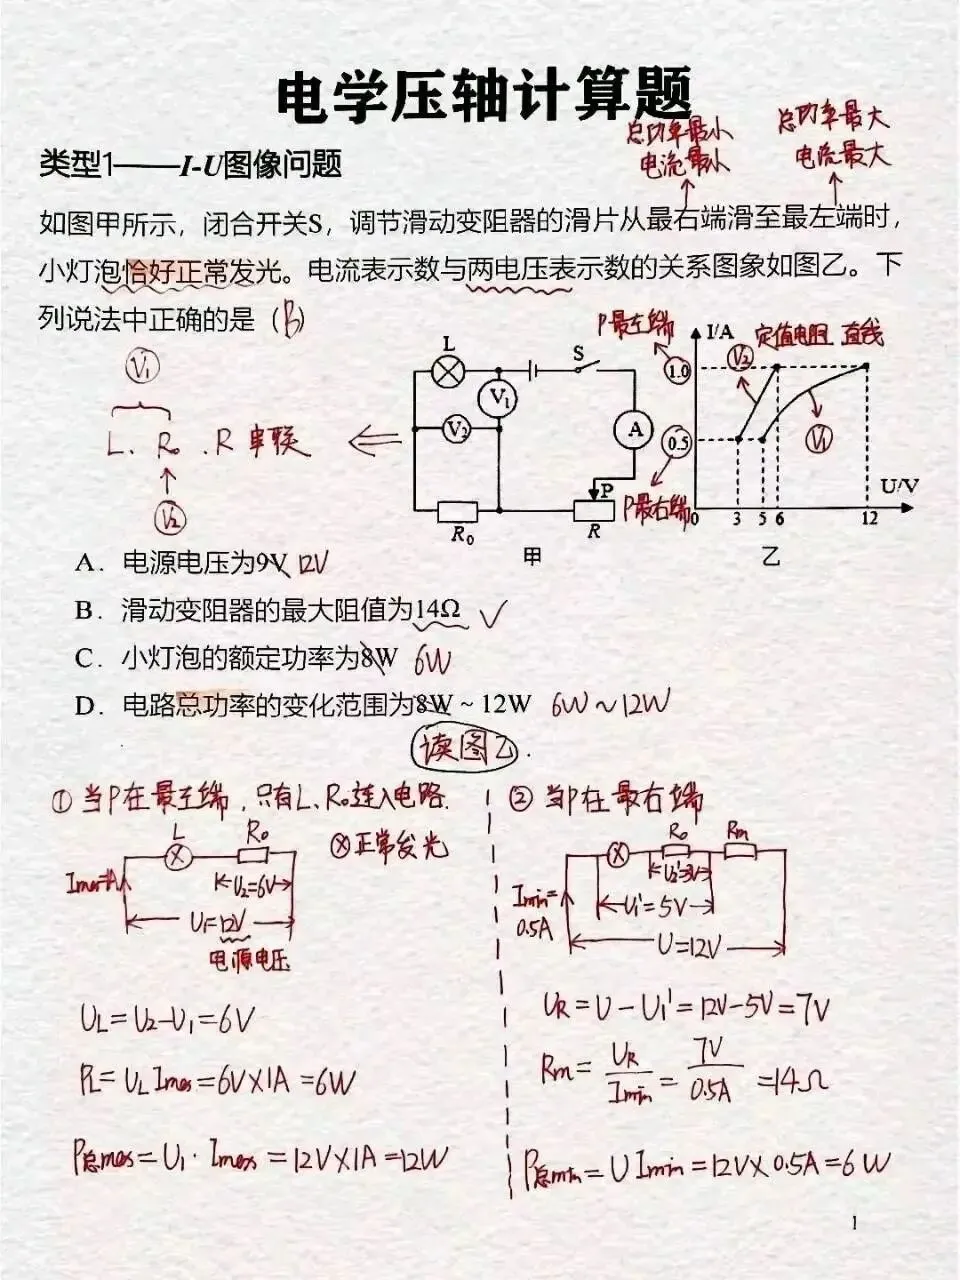 电学压轴计算题
总功率最小 总功率最大
电流最小 电流最大
类型1——I-U图像问题
如图甲所示，闭合开关S，调节滑动变阻器的滑片从最右端滑至最左端时，
小灯泡恰好正常发光。电流表示数与两电压表示数的关系图象如图乙。下
列说法中正确的是（B）
P最左端 I/A 定值电阻 直线
L S 1.0 V₂
V₁ V₁
L、R₀、R 串联 V₂ A 0.5 V₁
V₂ P P最右端 U/V
R₀ R 0 3 5 6 12
甲 乙
A．电源电压为9V 12V
B．滑动变阻器的最大阻值为14Ω ✓
C．小灯泡的额定功率为8W 6W
D．电路总功率的变化范围为8W ~ 12W 6W~12W
读图乙.
① 当P在最左端，只有L、R₀连入电路.
L R₀ ⊗正常发光
Imax=1A U₂=6V
U₁=12V
电源电压
UL=U₂-U₁=6V
PL=UL Imax=6V×1A=6W
P总max=U₁·Imax=12V×1A=12W
② 当P在最右端
R₀ Rm
Imin=0.5A U₂'=3V
U₁'=5V
U=12V
UR=U-U₁'=12V-5V=7V
Rm=UR/Imin=7V/0.5A=14Ω
P总min=U Imin=12V×0.5A=6W
1